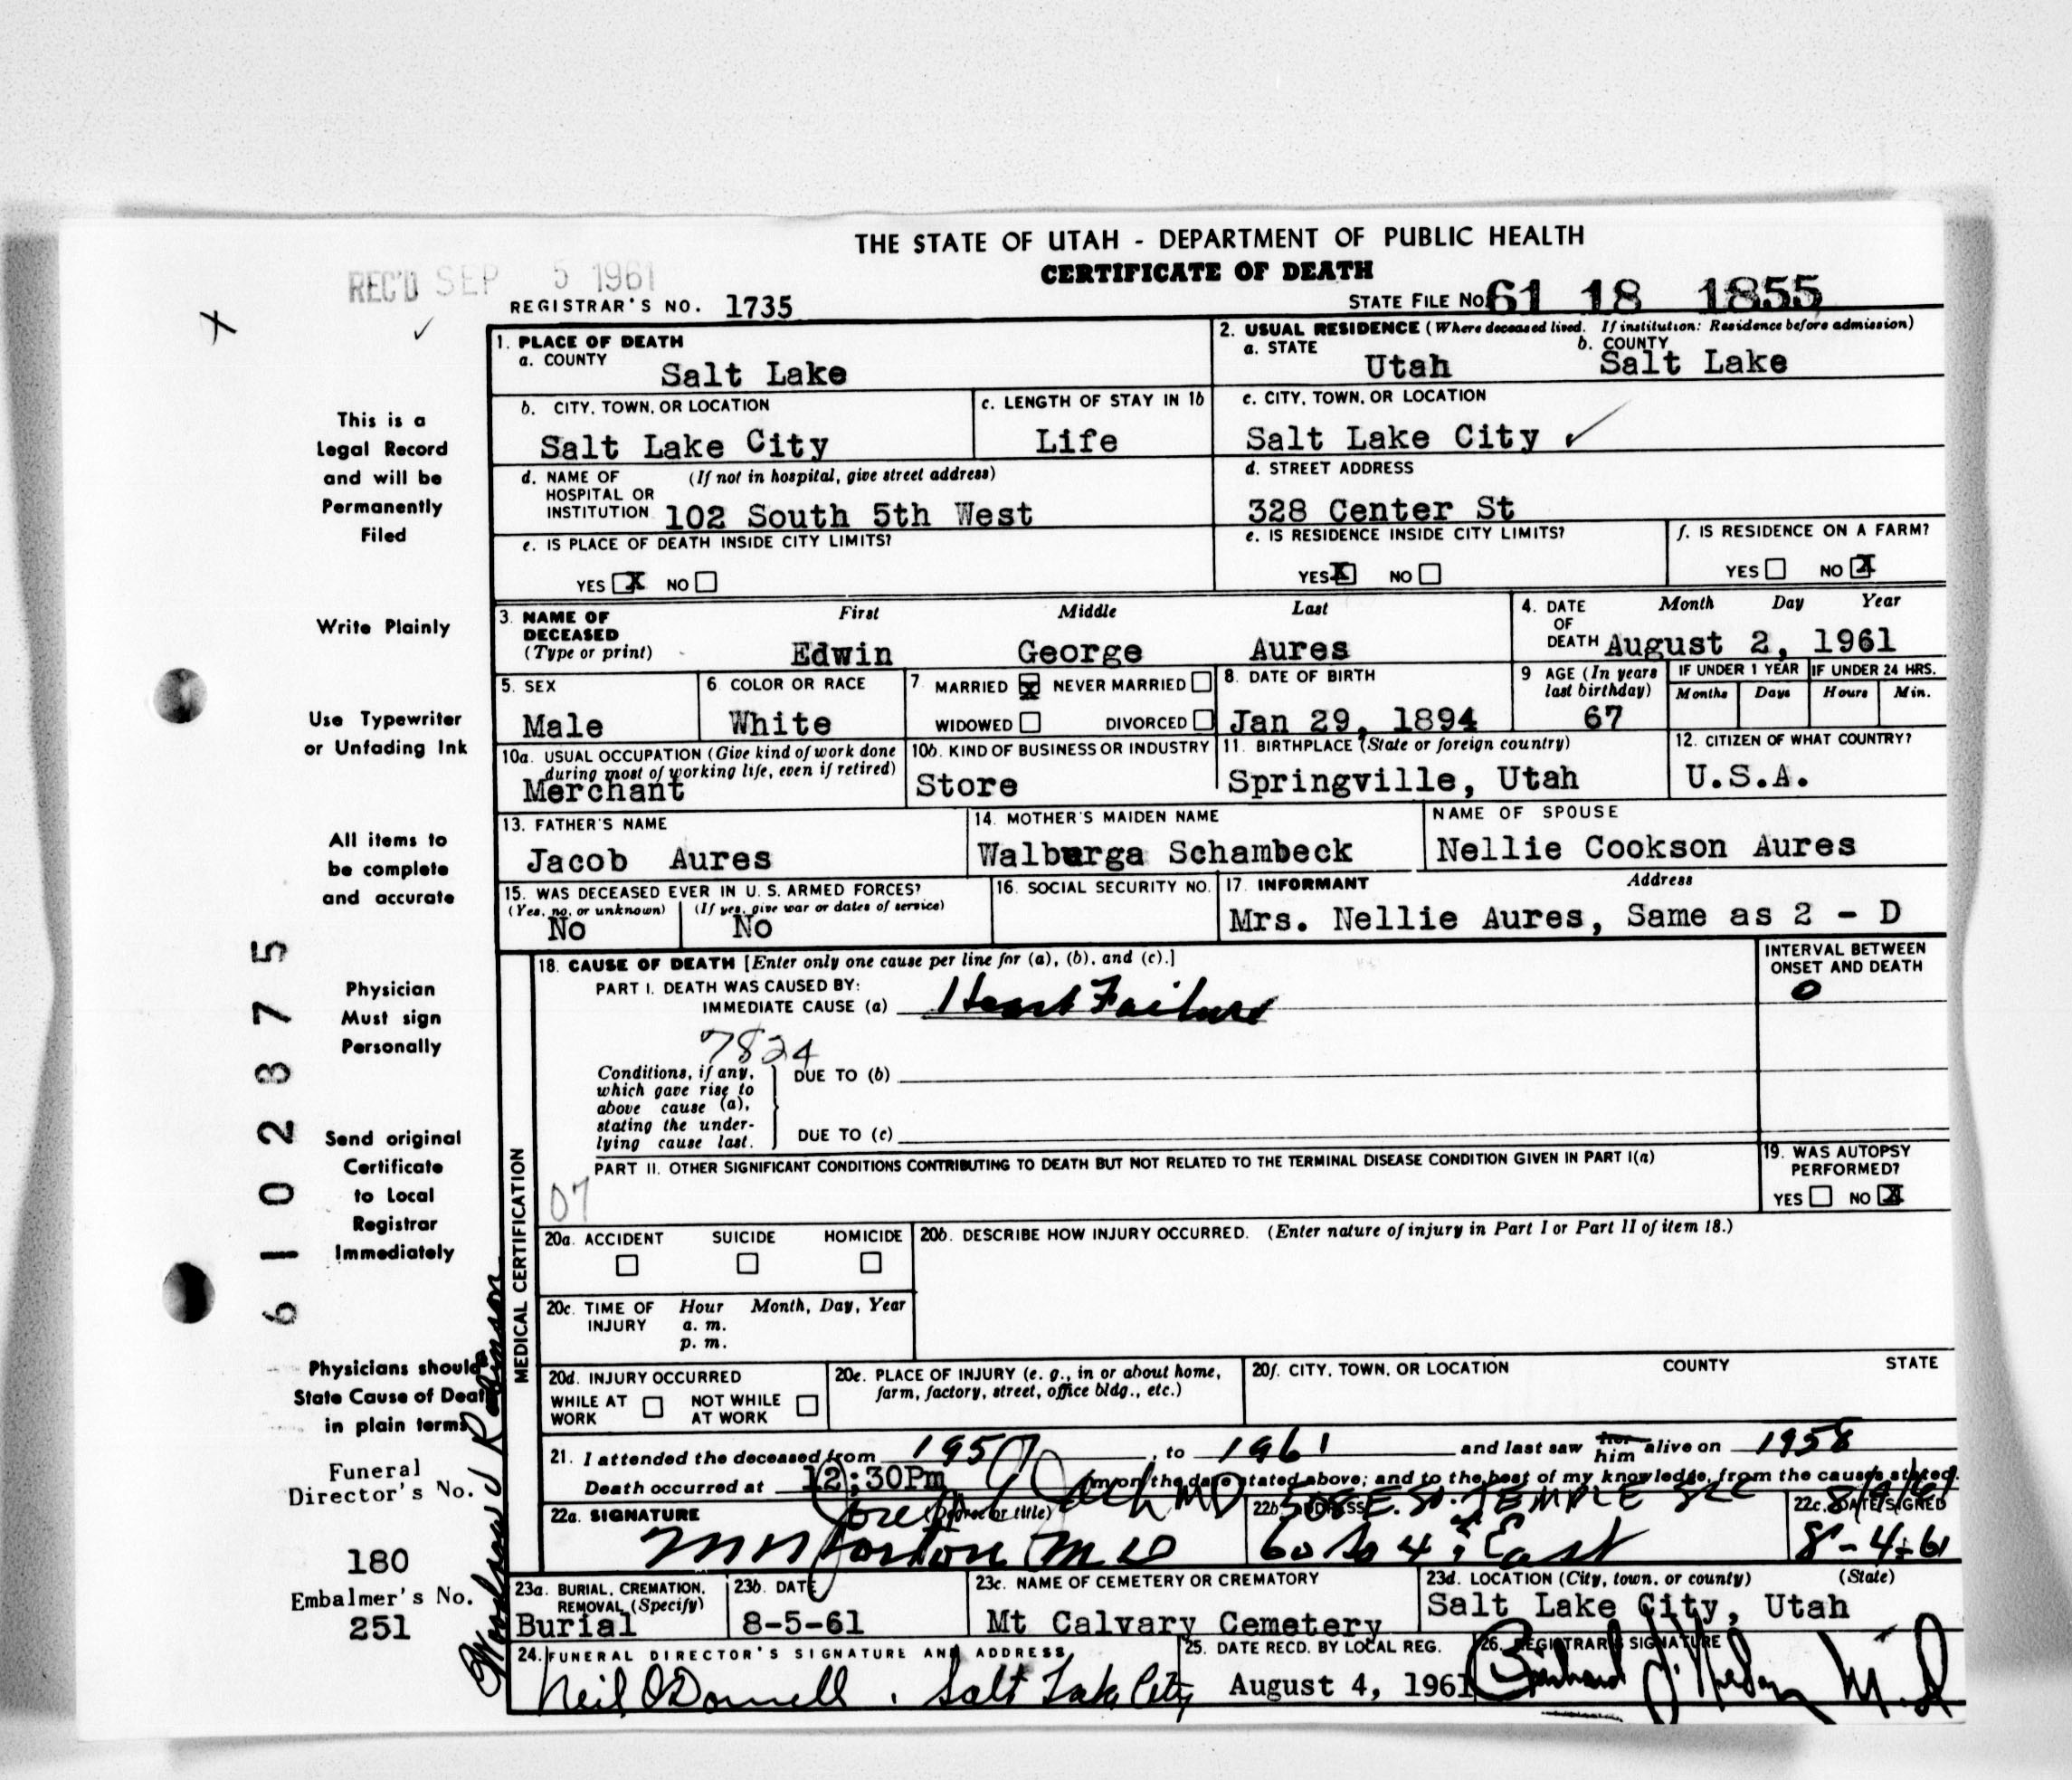 THE STATE OF UTAH - DEPARTMENT OF PUBLIC HEALTH
CERTIFICATE OF DEATH
REC'D SEP 5 1961
REGISTRAR'S NO. 1735
STATE FILE NO. 61 18 1855
1. PLACE OF DEATH
a. COUNTY
Salt Lake
2. USUAL RESIDENCE (Where deceased lived. If institution: Residence before admission)
a. STATE Utah b. COUNTY Salt Lake
b. CITY, TOWN, OR LOCATION
Salt Lake City
c. LENGTH OF STAY IN 1b
Life
c. CITY, TOWN, OR LOCATION
Salt Lake City ✓
d. NAME OF HOSPITAL OR INSTITUTION (If not in hospital, give street address)
102 South 5th West
d. STREET ADDRESS
328 Center St
e. IS PLACE OF DEATH INSIDE CITY LIMITS?
YES X NO
e. IS RESIDENCE INSIDE CITY LIMITS?
YES X NO
f. IS RESIDENCE ON A FARM?
YES NO X
3. NAME OF DECEASED (Type or print)
First Middle Last
Edwin George Aures
4. DATE OF DEATH Month Day Year
August 2, 1961
5. SEX
Male
6. COLOR OR RACE
White
7. MARRIED X NEVER MARRIED
WIDOWED DIVORCED
8. DATE OF BIRTH
Jan 29, 1894
9. AGE (In years last birthday)
67
IF UNDER 1 YEAR
Months Days
IF UNDER 24 HRS.
Hours Min.
10a. USUAL OCCUPATION (Give kind of work done during most of working life, even if retired)
Merchant
10b. KIND OF BUSINESS OR INDUSTRY
Store
11. BIRTHPLACE (State or foreign country)
Springville, Utah
12. CITIZEN OF WHAT COUNTRY?
U.S.A.
13. FATHER'S NAME
Jacob Aures
14. MOTHER'S MAIDEN NAME
Walburga Schambeck
NAME OF SPOUSE
Nellie Cookson Aures
15. WAS DECEASED EVER IN U. S. ARMED FORCES?
(Yes, no, or unknown) (If yes, give war or dates of service)
No No
16. SOCIAL SECURITY NO.
17. INFORMANT Address
Mrs. Nellie Aures, Same as 2 - D
MEDICAL CERTIFICATION
18. CAUSE OF DEATH [Enter only one cause per line for (a), (b), and (c).]
PART I. DEATH WAS CAUSED BY:
IMMEDIATE CAUSE (a) Heart Failure
INTERVAL BETWEEN ONSET AND DEATH
0
7824
Conditions, if any, which gave rise to above cause (a), stating the underlying cause last.
DUE TO (b)
DUE TO (c)
PART II. OTHER SIGNIFICANT CONDITIONS CONTRIBUTING TO DEATH BUT NOT RELATED TO THE TERMINAL DISEASE CONDITION GIVEN IN PART I(a)
07
19. WAS AUTOPSY PERFORMED?
YES NO X
20a. ACCIDENT SUICIDE HOMICIDE
20b. DESCRIBE HOW INJURY OCCURRED. (Enter nature of injury in Part I or Part II of item 18.)
20c. TIME OF INJURY Hour Month, Day, Year
a. m.
p. m.
20d. INJURY OCCURRED
WHILE AT WORK NOT WHILE AT WORK
20e. PLACE OF INJURY (e. g., in or about home, farm, factory, street, office bldg., etc.)
20f. CITY, TOWN, OR LOCATION COUNTY STATE
21. I attended the deceased from 1957, to 1961 and last saw her him alive on 1958
Death occurred at 12:30Pm m on the date stated above; and to the best of my knowledge, from the causes stated.
22a. SIGNATURE (Degree or title)
Joseph MD
M D
22b. ADDRESS
508 E. So. TEMPLE SLC
60 So 4th East
22c. DATE SIGNED
8/4/61
8-4-61
23a. BURIAL, CREMATION, REMOVAL (Specify)
Burial
23b. DATE
8-5-61
23c. NAME OF CEMETERY OR CREMATORY
Mt Calvary Cemetery
23d. LOCATION (City, town, or county) (State)
Salt Lake City, Utah
24. FUNERAL DIRECTOR'S SIGNATURE AND ADDRESS
Neil O'Donnell, Salt Lake City
25. DATE RECD. BY LOCAL REG.
August 4, 1961
26. REGISTRAR'S SIGNATURE
M.D
This is a
Legal Record
and will be
Permanently
Filed
Write Plainly
Use Typewriter
or Unfading Ink
All items to
be complete
and accurate
Physician
Must sign
Personally
Send original
Certificate
to Local
Registrar
Immediately
Physicians should
State Cause of Death
in plain terms
Funeral
Director's No.
180
Embalmer's No.
251
6102875